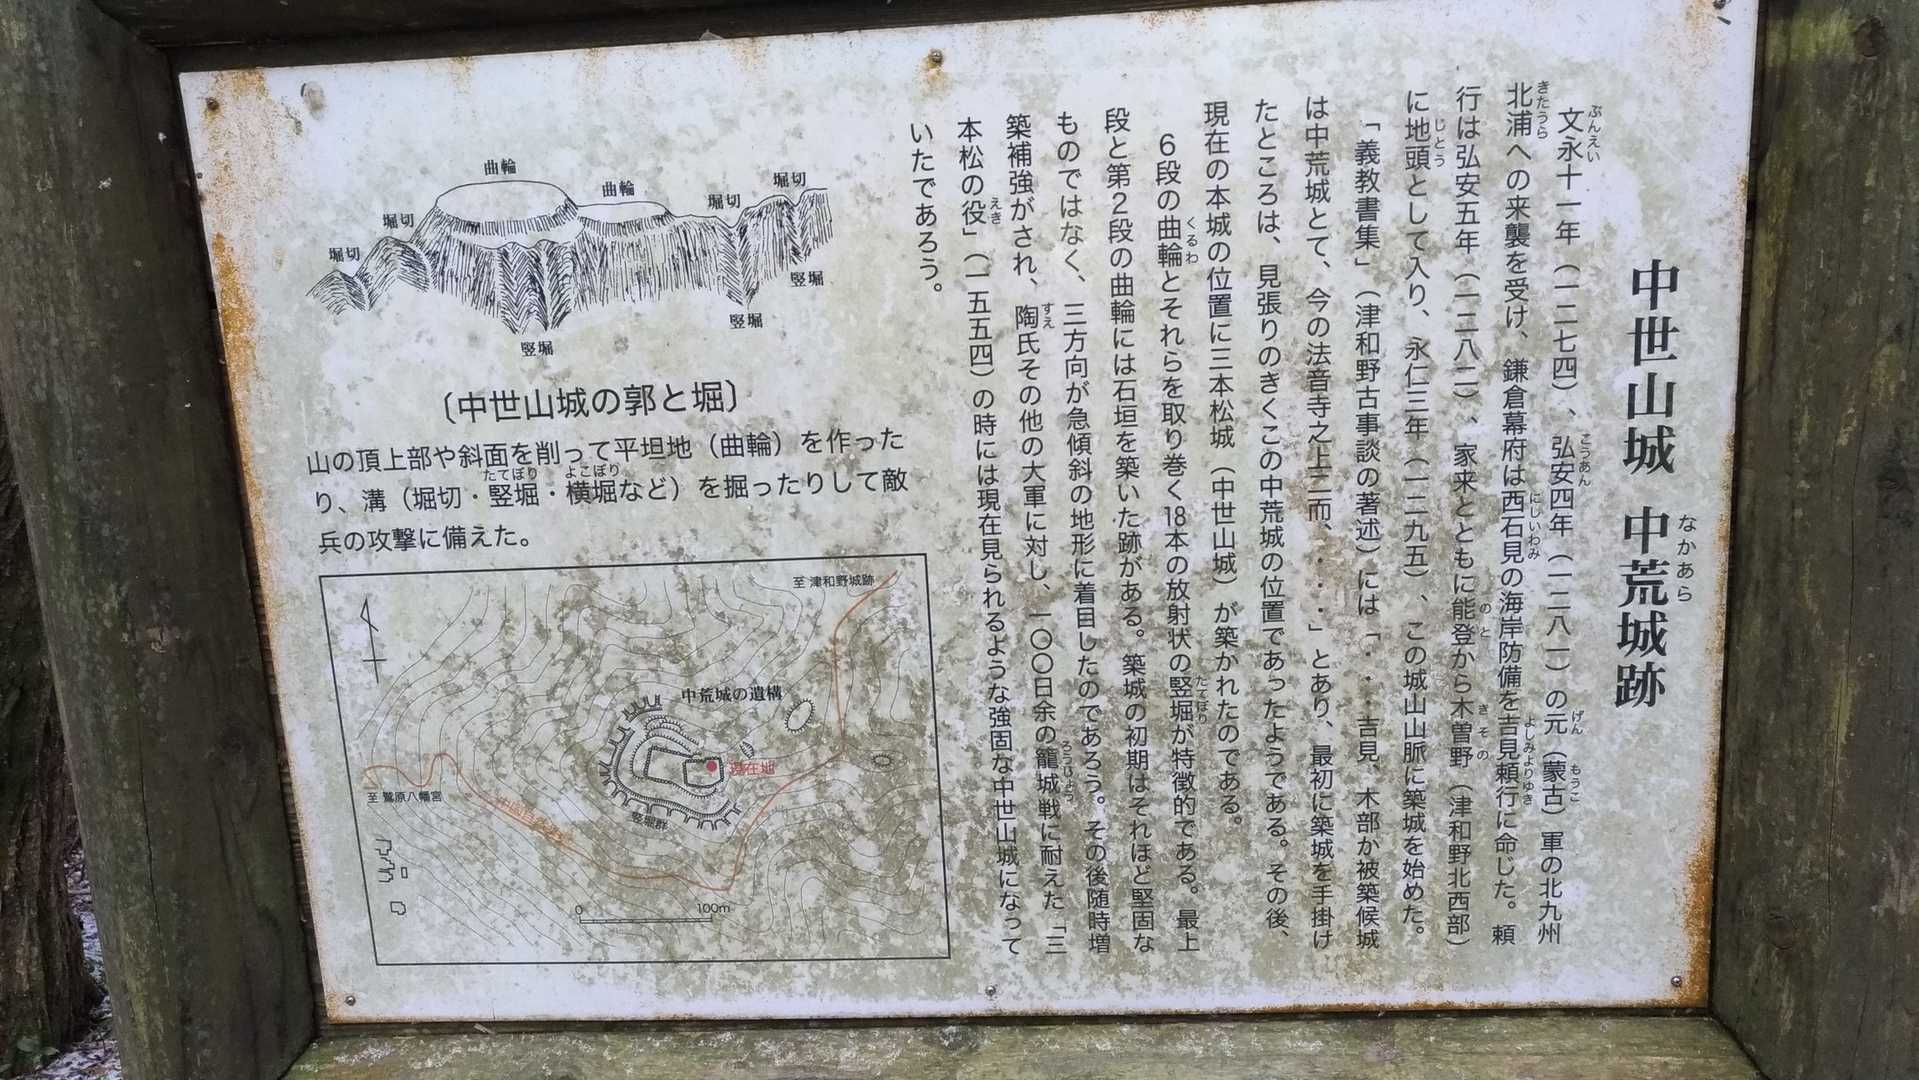 中世山城 中荒城跡
なかあら
文永十一年（一二七四）、弘安四年（一二八一）の元（蒙古）軍の北九州
ぶんえい
こうあん
げん
もうこ
北浦への来襲を受け、鎌倉幕府は西石見の海岸防備を吉見頼行に命じた。頼
きたうら
にしいわみ
よしみよりゆき
行は弘安五年（一二八二）、家来とともに能登から木曽野（津和野北西部）
のと
きその
に地頭として入り、永仁三年（一二九五）、この城山山脈に築城を始めた。
じとう
「義教書集」（津和野古事談の著述）には「・・・吉見、木部か被築候城
は中荒城とて、今の法音寺之上二而、・・・」とあり、最初に築城を手掛け
たところは、見張りのきくこの中荒城の位置であったようである。その後、
現在の本城の位置に三本松城（中世山城）が築かれたのである。
6段の曲輪とそれらを取り巻く18本の放射状の竪堀が特徴的である。最上
くるわ
たてぼり
段と第2段の曲輪には石垣を築いた跡がある。築城の初期はそれほど堅固な
ものではなく、三方向が急傾斜の地形に着目したのであろう。その後随時増
築補強がされ、陶氏その他の大軍に対し、一〇〇日余の籠城戦に耐えた「三
すえ
ろうじょう
本松の役」（一五五四）の時には現在見られるような強固な中世山城になって
えき
いたであろう。
曲輪
曲輪
堀切
堀切
堀切
堀切
竪堀
竪堀
竪堀
〔中世山城の郭と堀〕
山の頂上部や斜面を削って平坦地（曲輪）を作った
り、溝（堀切・竪堀・横堀など）を掘ったりして敵
たてぼり
よこぼり
兵の攻撃に備えた。
至 津和野城跡
中荒城の遺構
現在地
至 鷲原八幡宮
竪堀群
0
100m